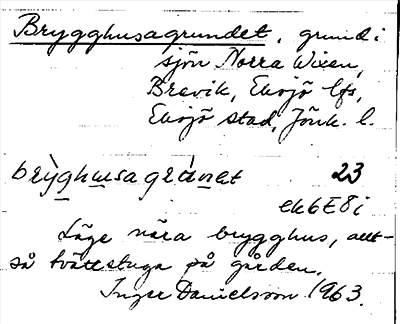 Brygghusagrundet, grund i
sjön Norra Wixen,
Brevik, Eksjö lfs,
Eksjö stad, Jönk. l.
brỳghusagrànet 23
ek6E8i
Läge nära brygghus, allt-
så tvättstuga på gården.
Inger Danielsson 1963.